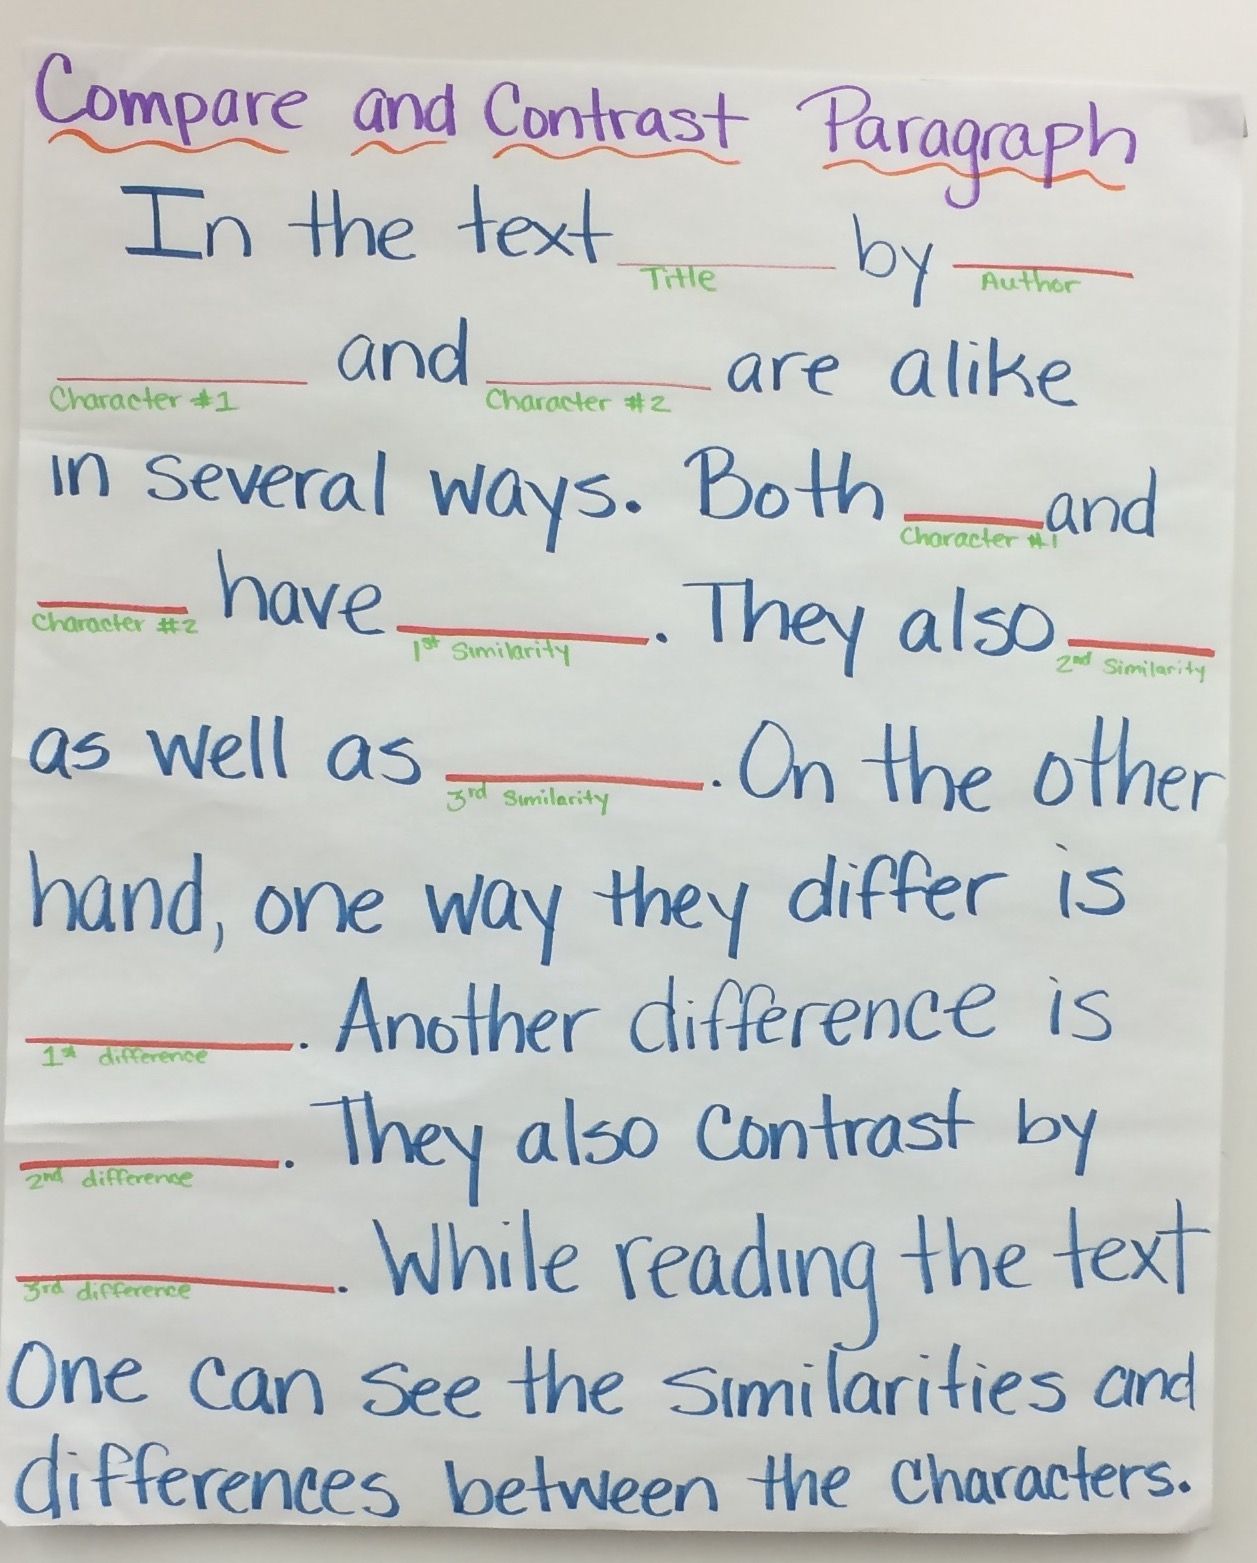 Compare and Contrast Paragraph
In the text by
Title Author
and are alike
Character #1 Character #2
in several ways. Both and
Character #1
have . They also
Character #2 1st Similarity 2nd Similarity
as well as . On the other
3rd Similarity
hand, one way they differ is
. Another difference is
1st difference
. They also contrast by
2nd difference
. While reading the text
3rd difference
One can see the similarities and
differences between the characters.